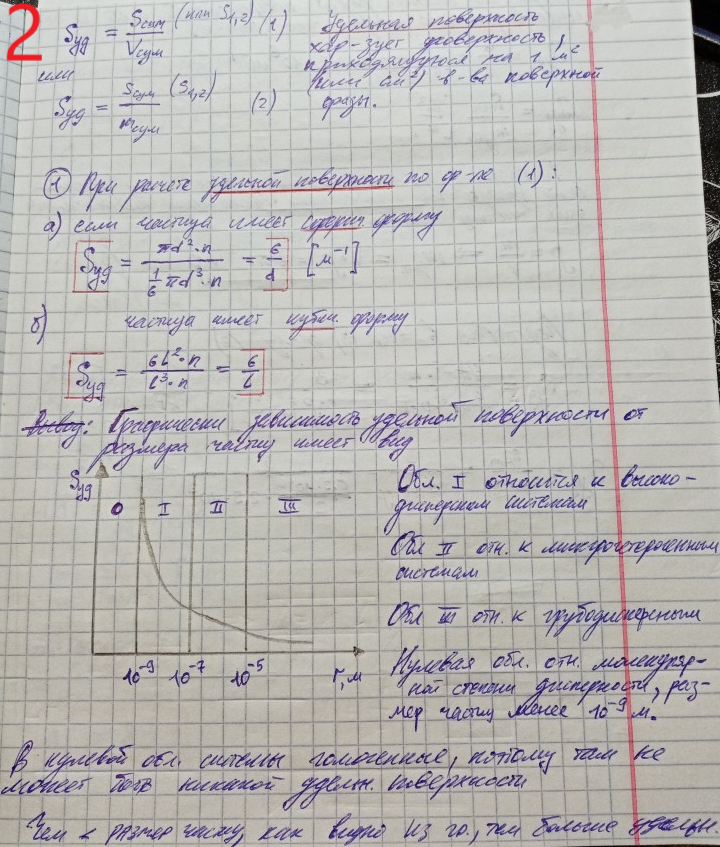 2
Sуд = Sсум/Vсум (или S1,2) (1) Удельная поверхность
хар-зует поверхность,
или приходящуюся на 1 м²
(или см²) в-ва поверхной
Sуд = Sсум/mсум (S1,2) (2) фазы.
① При расчете удельной поверхности по ф-ле (1):
а) если частица имеет сферич форму
Sуд = πd²·n / (1/6 πd³·n) = 6/d [м⁻¹]
б) частица имеет кубич. форму
Sуд = 6l²·n / l³·n = 6/l
Вывод: Графически зависимость удельной поверхности от
размера частиц имеет вид
Sуд
0 I II III
10⁻⁹ 10⁻⁷ 10⁻⁵ r, м
Обл. I относится к высоко-
дисперсным системам
Обл II отн. к микрогетерогенным
системам
Обл III отн. к грубодисперсным
Нулевая обл. отн. молекуляр-
ной степени дисперсности, раз-
мер частиц менее 10⁻⁹ м.
В нулевой обл. системы гомогенные, поэтому там не
может быть никакой удельн. поверхности
Чем < размер частиц, как видно из гр., тем больше удельн.